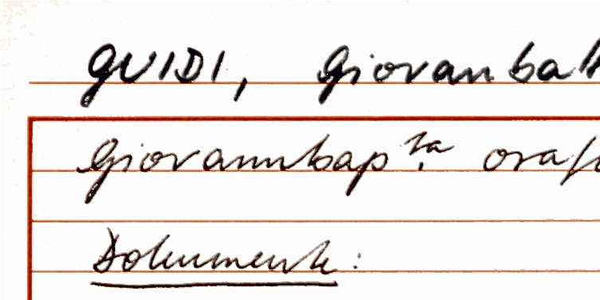 GUIDI, Giovanbat
Giovannbap.ta oraf
Dokumente: